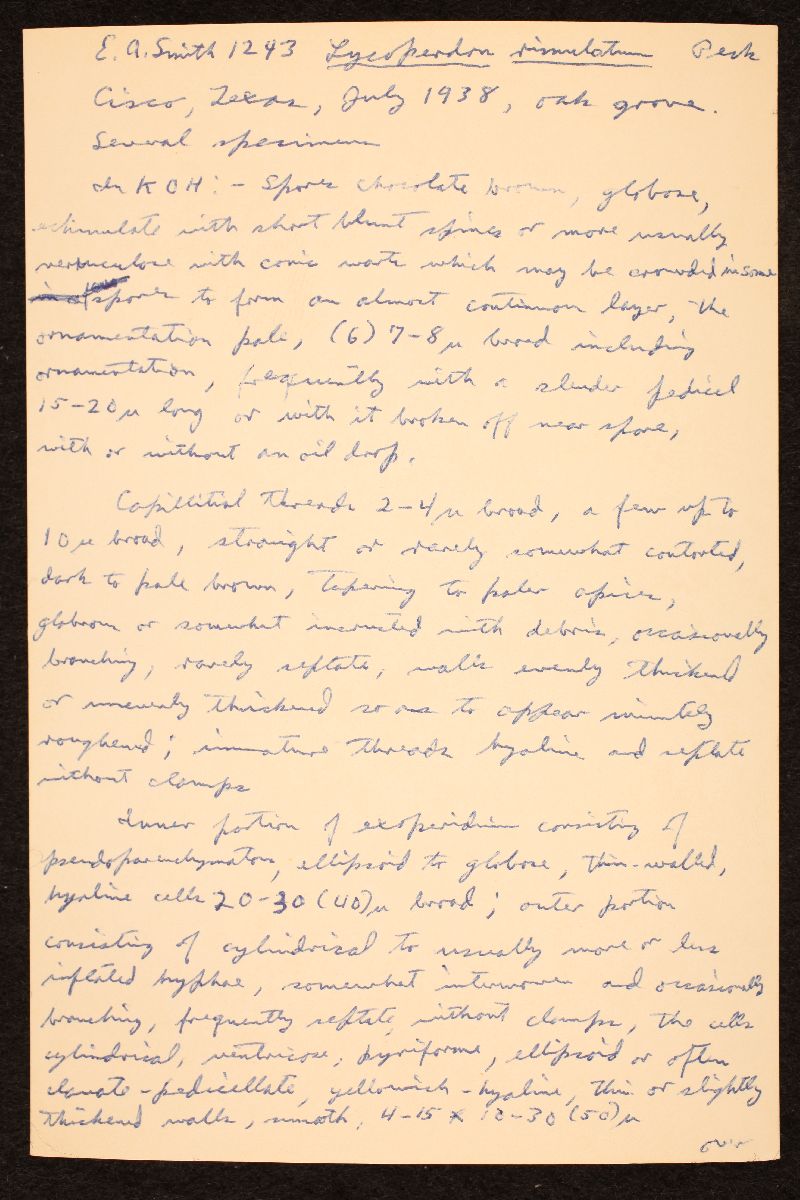 E. A. Smith 1243 Lycoperdon rimulatum Peck
Cisco, Texas, July 1938, oak grove.
Several specimens
In KOH: - Spores chocolate brown, globose,
echinulate with short blunt spines or more usually
verruculose with conic warts which may be crowded in some
spores to form an almost continuous layer, the
ornamentation pale, (6) 7-8 µ broad including
ornamentation, frequently with a slender pedicel
15-20 µ long or with it broken off near spore,
with or without an oil drop.
Capillitial threads 2-4 µ broad, a few up to
10 µ broad, straight or rarely somewhat contorted,
dark to pale brown, tapering to paler apices,
glabrous or somewhat incrusted with debris, occasionally
branching, rarely septate, walls evenly thickened
or unevenly thickened so as to appear minutely
roughened; immature threads hyaline and septate
without clamps
Inner portion of exoperidium consisting of
pseudoparenchymatous, ellipsoid to globose, thin-walled,
hyaline cells 20-30 (40) µ broad; outer portion
consisting of cylindrical to usually more or less
inflated hyphae, somewhat interwoven and occasionally
branching, frequently septate, without clamps, the cells
cylindrical, ventricose, pyriforme, ellipsoid or often
clavate-pedicellate, yellowish-hyaline, thin or slightly
thickened walls, smooth, 4-15 x 10-30 (50) µ
over